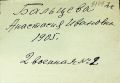 Бальцева
Анастасия Ивановна
1905.
2 военная №2